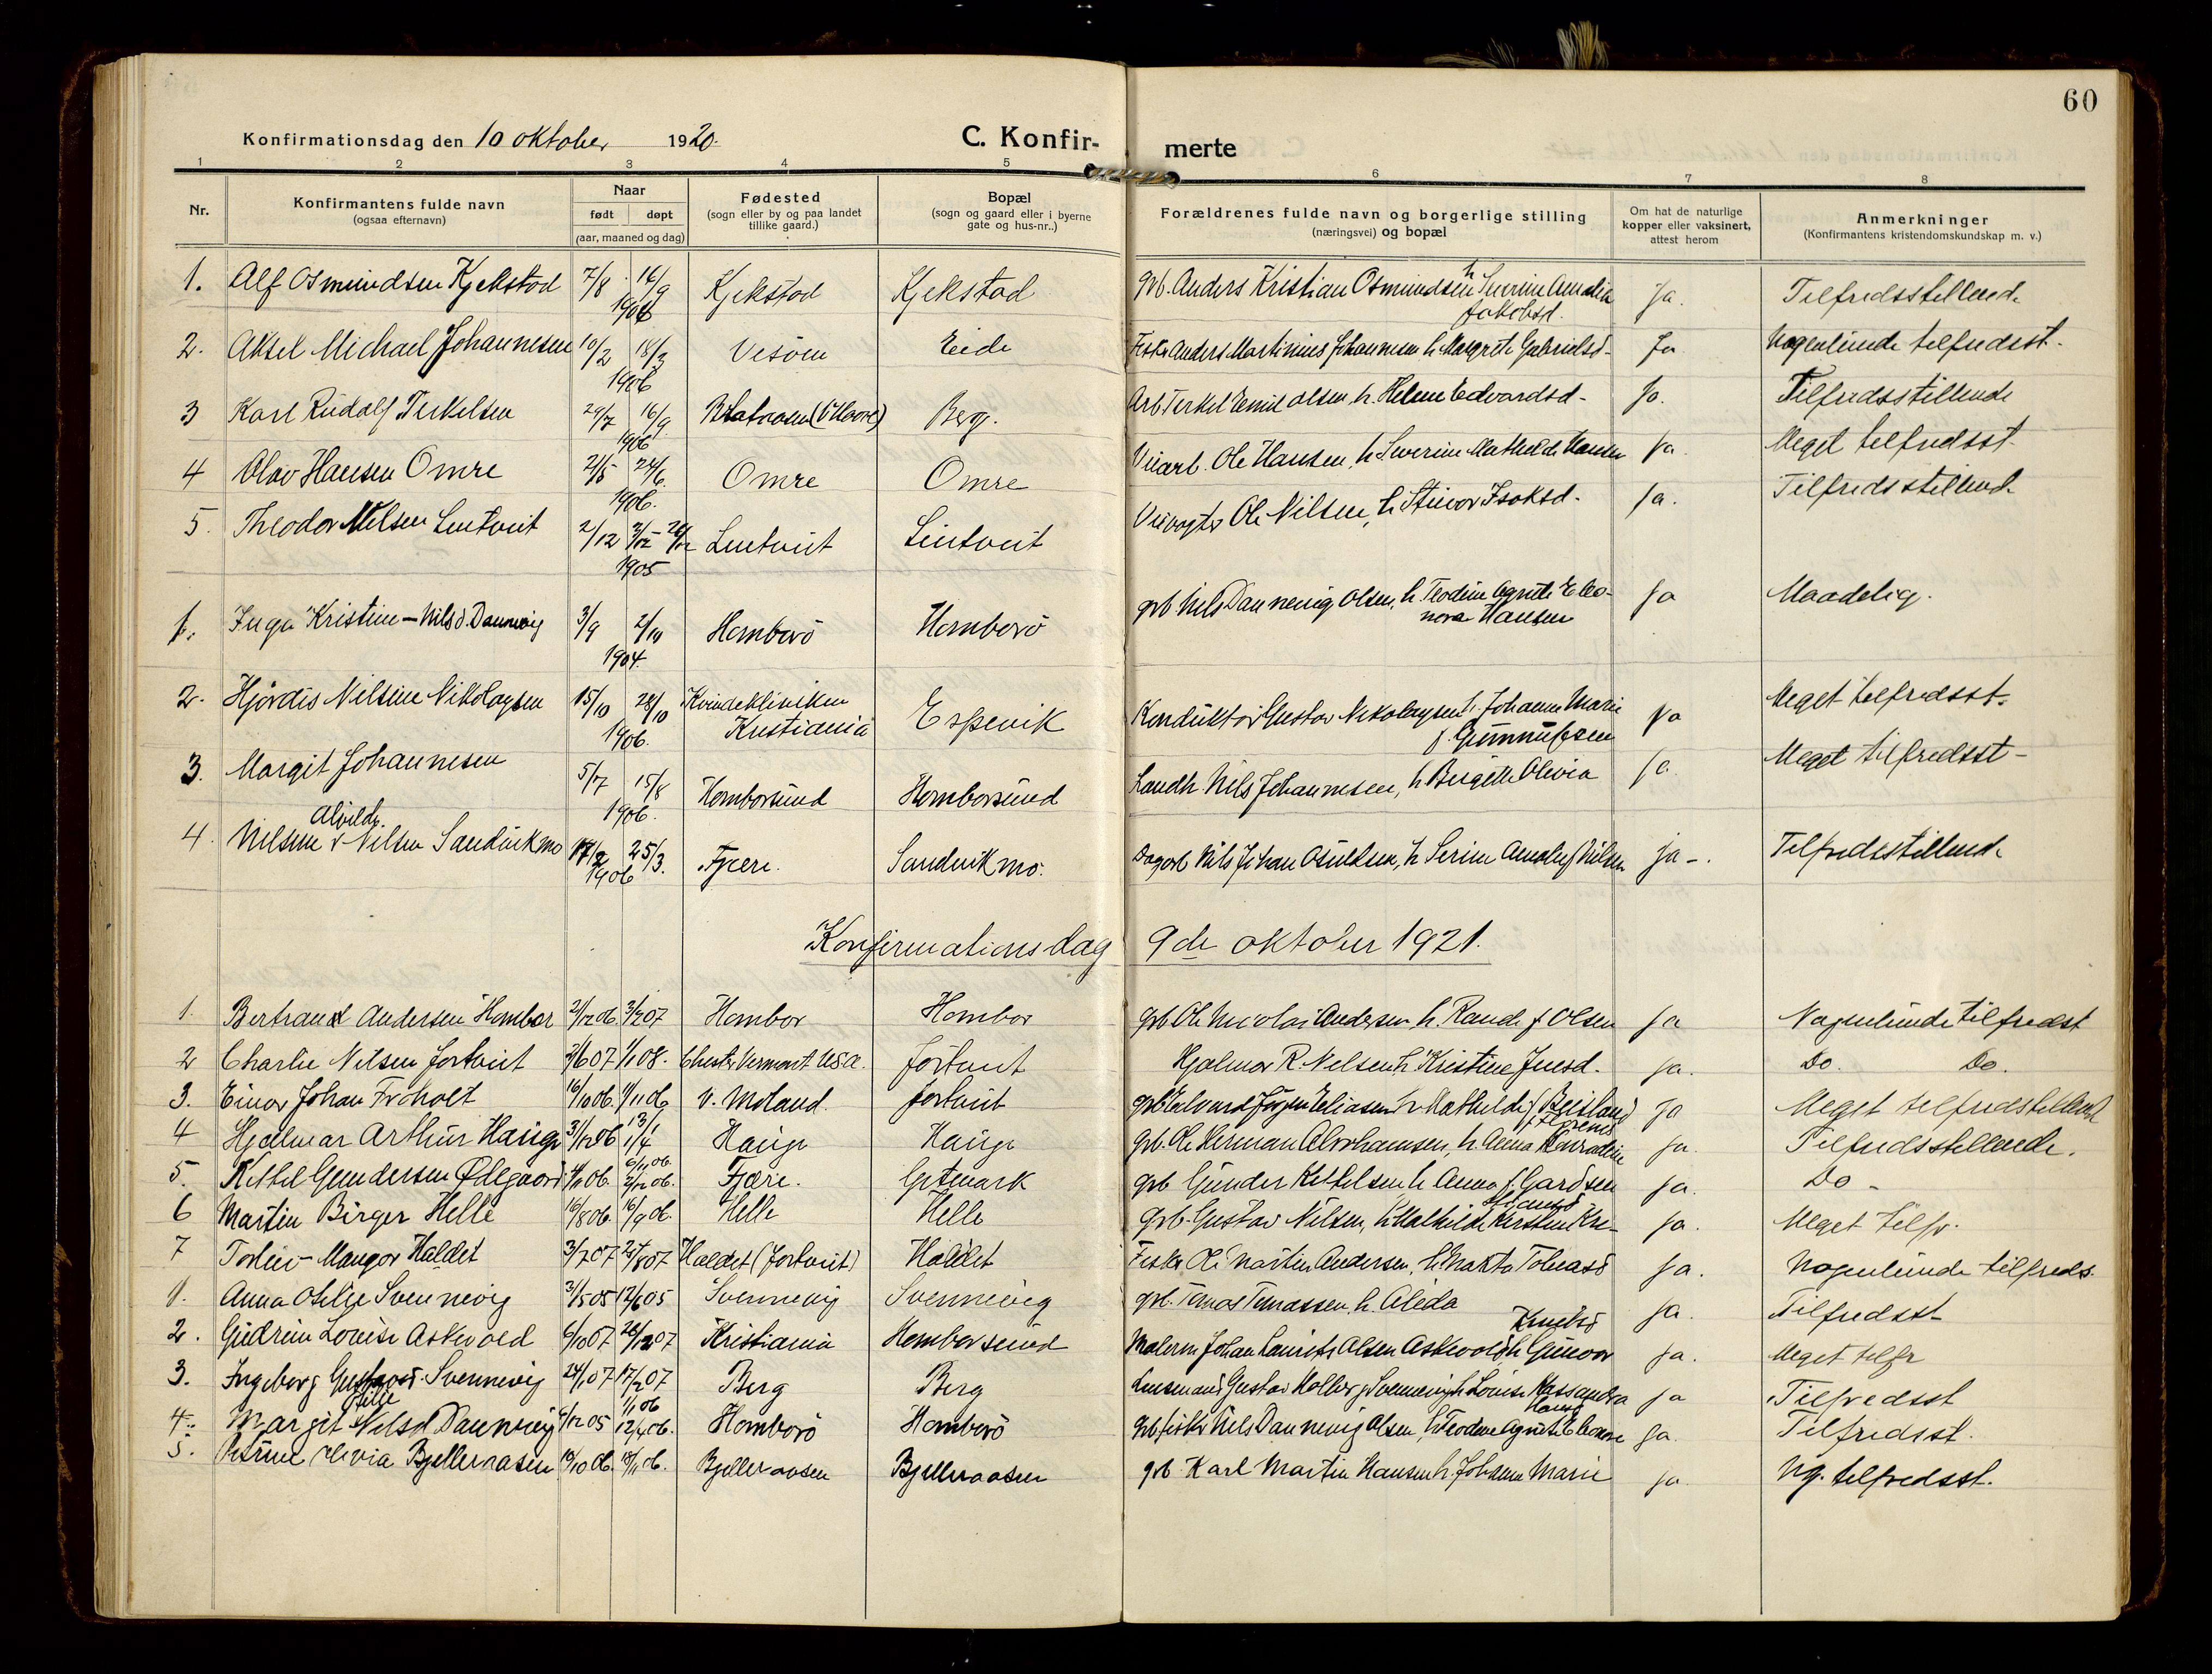 60
Konfirmationsdag den 10 oktober 1920.
C. Konfir-
merte
1 2 3 4 5 6 7 8
Nr.
Konfirmantens fulde navn
(ogsaa efternavn)
Naar
født døpt
(aar, maaned og dag)
Fødested
(sogn eller by og paa landet
tillike gaard.)
Bopæl
(sogn og gaard eller i byerne
gate og hus-nr..)
Forældrenes fulde navn og borgerlige stilling
(næringsvei) og bopæl
Om hat de naturlige
kopper eller vaksinert,
attest herom
Anmerkninger
(Konfirmantens kristendomskundskap m. v.)
1. Alf Osmundsen Kjekstad 7/8 16/9 1906 Kjekstad Kjekstad Gb. Anders Kristian Osmundsen h Severine Amalia Jakobsd. Ja. Tilfredsstillende
2. Aksel Michael Johannesen 10/2 18/3 1906 Vesöen Eide Fisker Anders Martinius Johannesen h Margrete Gabrielsd- Ja Nogenlunde tilfredsst.
3 Karl Rudolf Terkelsen 29/7 16/9 1906 Berg. Arb. Terkel Emil Olsen, h. Helene Edvardsd- Ja. Tilfredsstillende
4 Olav Hansen Omre 2/5 24/6 1906. Omre Omre Veiarb. Ole Hansen, h Severine Mathilde Hansen Ja. Meget tilfredsst
5. Theodor Nilsen Lintveit 2/12 1905 Lintveit Lintveit Veivogter Ole Nilsen, h Isaksd- Ja. Tilfredsstillende
1. Inga Kristine - Nilsd. Dannevig 3/9 2/10 1904. Homborö Homborö gb. Nils Dannevig Olsen, h. Teodine Agnete Eleonora Hansen Ja Maadelig.
2. Hjördis Nilsine Nikolaysen 15/10 28/10 1906. Kvindekliniken Kristiania Espevik Konduktör Gustav Nikolaysen h. Johanne Marie f. Gunnufsen Ja Meget tilfredsst.
3. Margit Johannesen 5/7 15/8 1906. Homborsund Homborsund Landh. Nils Johannesen, h Birgitte Olivia Ja. Meget tilfredsst-
4. Nilsine Alvilde Nilsen Sandvikmo 17/2 25/3. 1906 Fjære. Sandvikmo. Dagarb Nils Johan Osuldsen, h Serine Amalie f Nilsen Ja-. Tilfredsstillende
Konfirmationsdag 9de oktober 1921.
1. Bertrand Andersen Hombor 2/12 06 3/2 07 Hombor Hombor gb. Ole Nicolai Andersen h. Rande f Olsen Ja Nogenlunde tilfredst
2 Charlie Nilsen Jortveit 2/6 07 1/1 08. Chester Vermont U.S.A. Jortveit Hjalmar R. Nilsen h Kristine Jensd. Ja. Do. Do.
3. Einar Johan Fröholt 16/10 06. 11/11 06 V. Moland. Jortveit gb. Edvard Jörgen Eliasen h Mathilde f Beisland Ja Meget tilfredstillend
4 Hjalmar Arthur Hauge 31/12 06 13/1 1/4 Hauge Hauge gb. Ole Herman Abrahamsen, h. Anna Konradine Ja. Tilfredsstillende.
5. Kittel Gundersen Ødegaard 4/11 06. 2/12 06. Fjære. Geitmark gb Gunder Kittelsen h Anna f. Gardsen Ja. Do-
6 Martin Birger Helle 16/8 06. 16/9 06. Helle Helle gb. Gustav Nilsen, h Mathilde Kirstine Ja. Meget tilfr.
7 Torleiv-Mangor Haldet 3/2 07 25/8 07 Haldet (Jortveit) Haldet Fisker Ole Martin Andersen, h Marta Tobiasd Ja. Nogenlunde tilfreds.
1. Anna Otilie Svennevig 31/5 05 12/6 05 Svennevig Svennevig gb. Tomas Tomassen, h. Aleda Ja. Tilfredsst-
2. Gudrun Louise Askevold 6/10 07 26/12 07 Kristiania Homborsund Malerm. Johan Laurits Olsen Askevold h Gunvor Knudsd Ja. Meget tilfr
3. Ingeborg Gustavsd. Svennevig 24/1 07 17/2 07 Berg Berg Lensmand Gustav Svennevig h Louise Kassandra Ja Tilfredsst
4. Margit Nilsd Dannevig 12 05 12/4 06. Homborö Homborö gb. fisker Nils Dannevig Olsen, h Teodine Agnete Eleonore Hansen Ja. Tilfredsst.
5. Petrine Olivia Bjelleraasen 10/10 06. 18/11 06. Bjelleraasen Bjelleraasen gb. Karl Martin Hansen h. Johanne Marie Ja. Ng. tilfredsst.